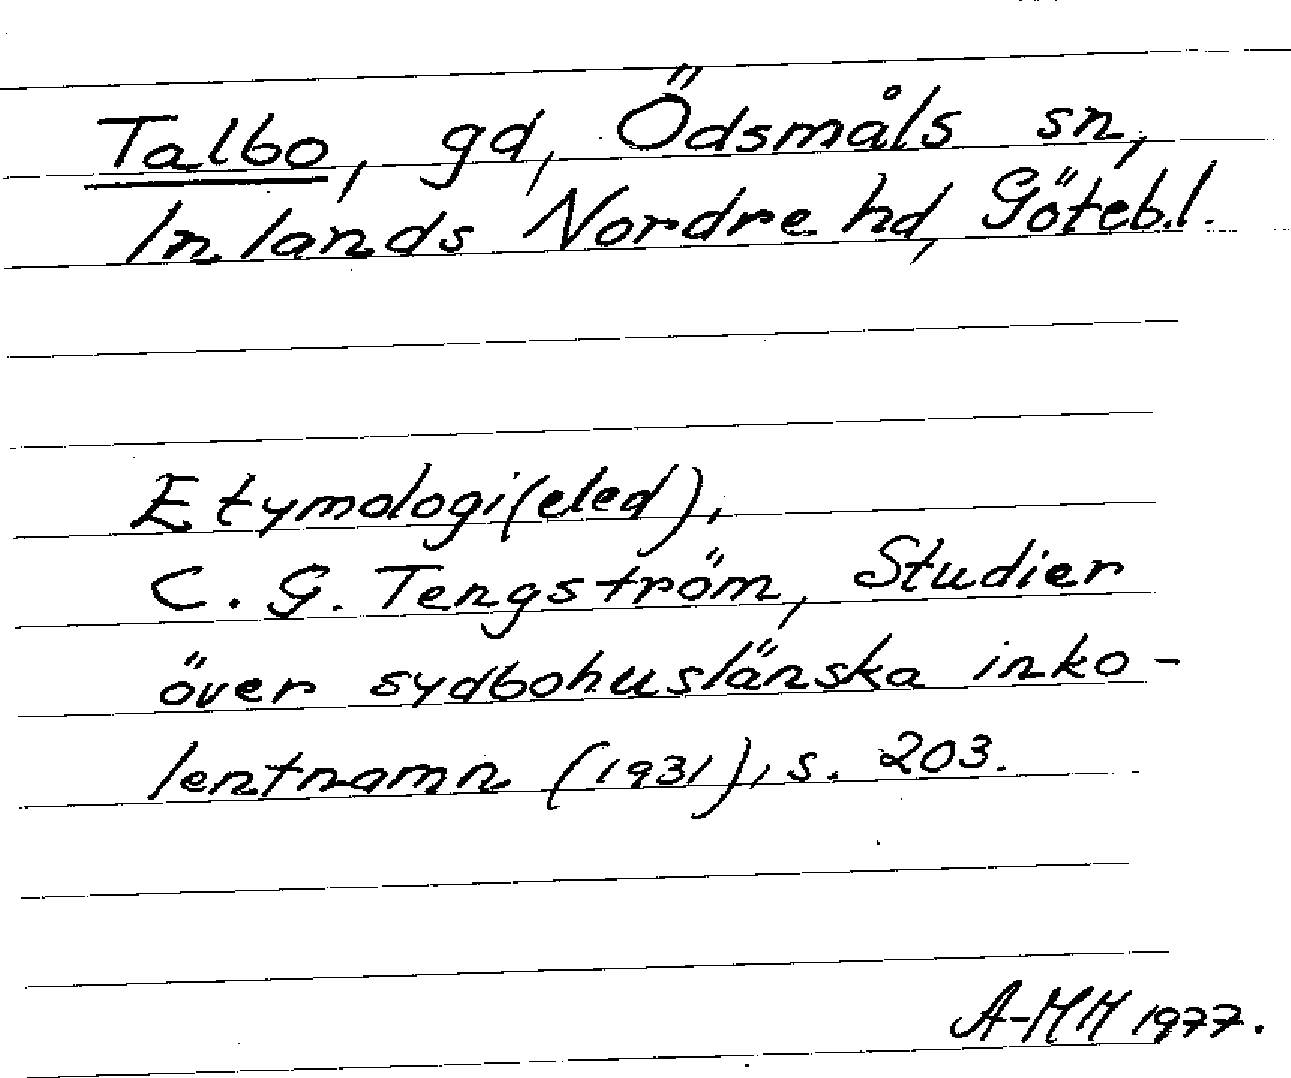 Talbo, gd, Ödsmåls sn,
Inlands Nordre hd, Göteb.l.
Etymologi(eled),
C. G. Tengström, Studier
över sydbohuslänska inko-
lentnamn (1931), s. 203.
A-MM 1977.